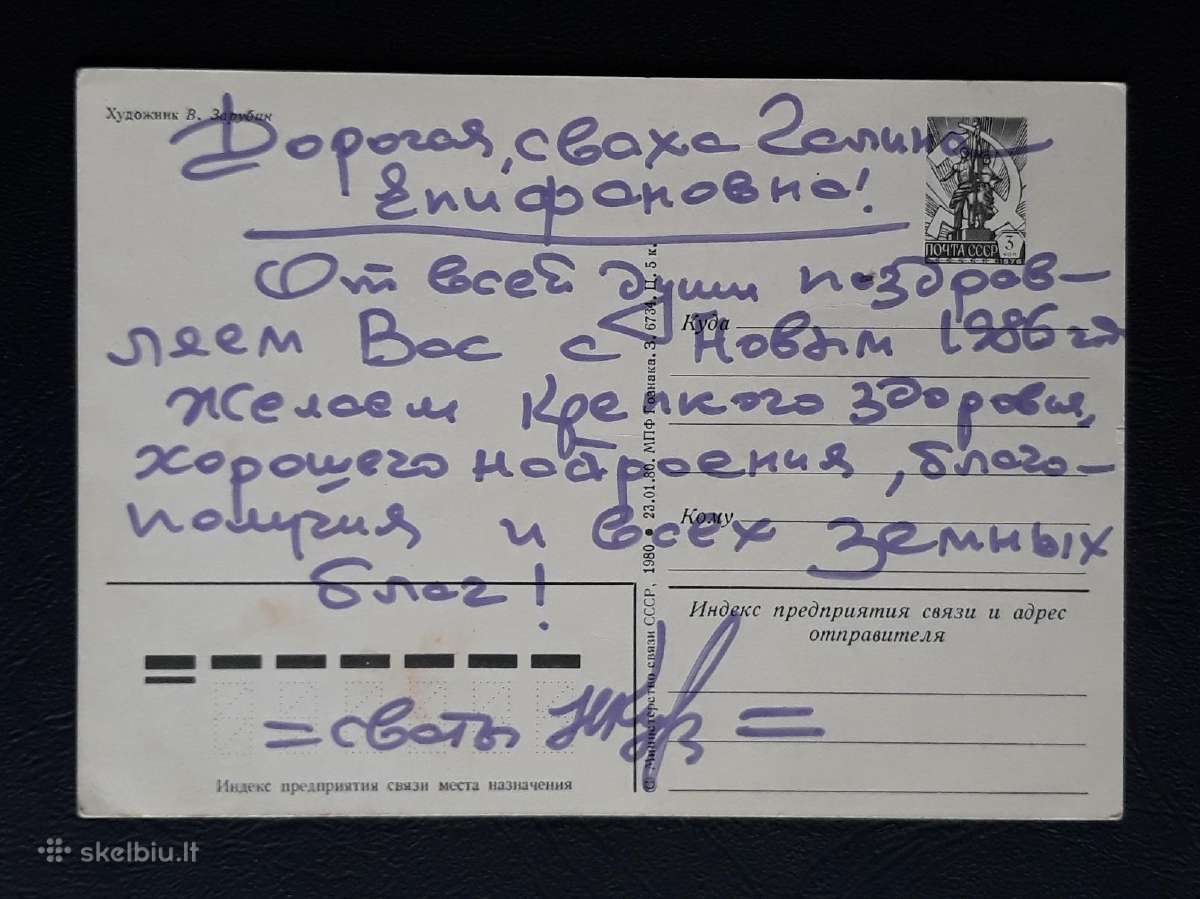 Художник В. Зарубин
Дорогая, сваха Галина
Епифановна!
ПОЧТА СССР 3 коп 1976
От всей души поздрав-
ляем Вас с Новым 1986 г-м
Желаем крепкого здоровья,
хорошего настроения, благо-
получия и всех земных
благ!
= сваты =
Куда
Кому
Индекс предприятия связи и адрес
отправителя
Индекс предприятия связи места назначения
© Министерство связи СССР, 1980 • 23.01.80. МПФ Гознака. З. 6734. Ц. 5 к.
skelbiu.lt